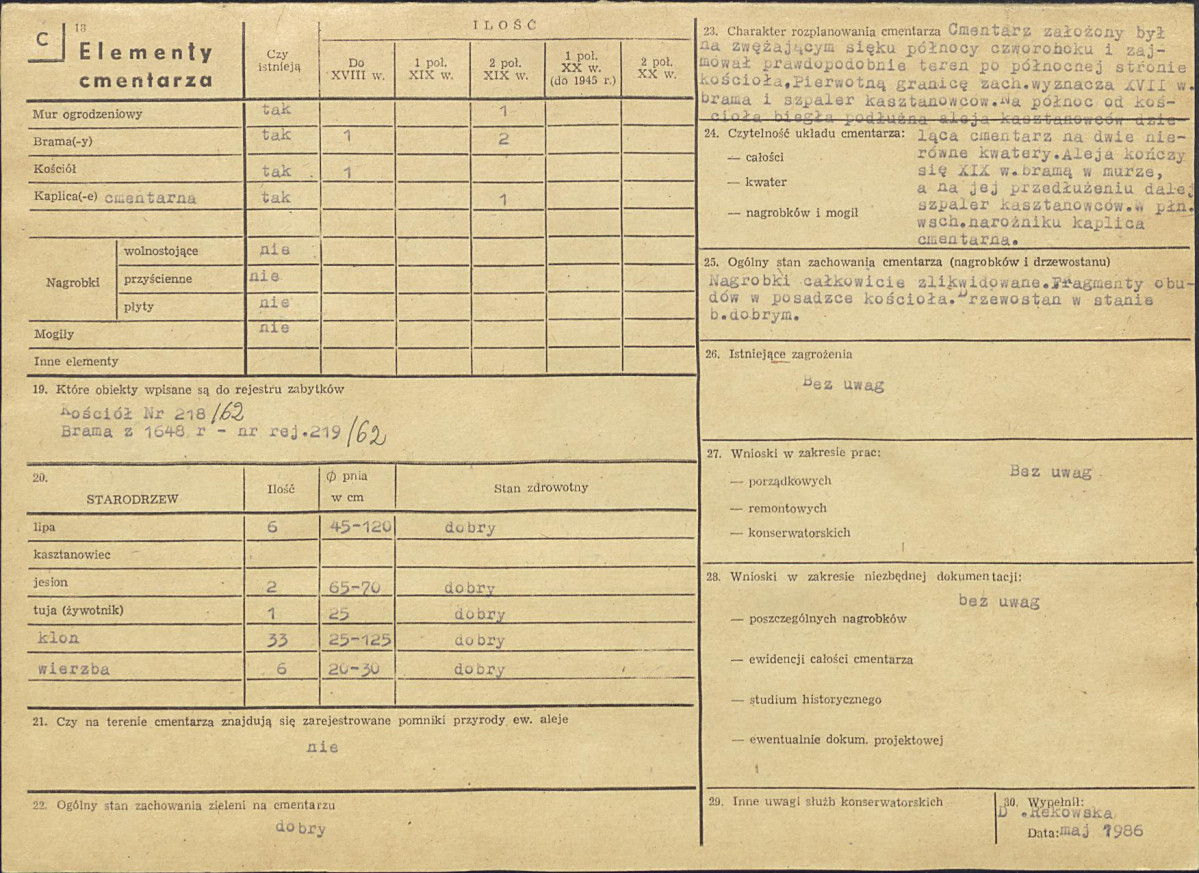 C
18
Elementy
cmentarza
Czy
istnieją
ILOŚĆ
Do
XVIII w.
1 poł.
XIX w.
2 poł.
XIX w.
1 poł.
XX w.
(do 1945 r.)
2 poł.
XX w.
Mur ogrodzeniowy tak 1
Brama(-y) tak 1 2
Kościół tak 1
Kaplica(-e) cmentarna tak 1
Nagrobki
wolnostojące nie
przyścienne nie
płyty nie
Mogiły nie
Inne elementy
19. Które obiekty wpisane są do rejestru zabytków
Kościół Nr 218/62
Brama z 1648 r - nr rej.219/62
20.
STARODRZEW
Ilość
Ø pnia
w cm
Stan zdrowotny
lipa 6 45-120 dobry
kasztanowiec
jesion 2 65-70 dobry
tuja (żywotnik) 1 25 dobry
klon 33 25-125 dobry
wierzba 6 20-30 dobry
21. Czy na terenie cmentarza znajdują się zarejestrowane pomniki przyrody ew. aleje
nie
22. Ogólny stan zachowania zieleni na cmentarzu
dobry
23. Charakter rozplanowania cmentarza Cmentarz założony był
na zwężającym sięku północy czworoboku i zaj-
mował prawdopodobnie teren po północnej stronie
kościoła.Pierwotną granicę zach.wyznacza XVII w.
brama i szpaler kasztanowców.Na północ od koś-
cioła biegła podłużna aleja kasztanowców dzie-
24. Czytelność układu cmentarza: ląca cmentarz na dwie nie-
— całości równe kwatery.Aleja kończy
— kwater się XIX w.bramą w murze,
a na jej przedłużeniu dalej
— nagrobków i mogił szpaler kasztanowców.W płn.
wsch.narożniku kaplica
cmentarna.
25. Ogólny stan zachowania cmentarza (nagrobków i drzewostanu)
Nagrobki całkowicie zlikwidowane.Fragmenty obu-
dów w posadzce kościoła.Drzewostan w stanie
b.dobrym.
26. Istniejące zagrożenia
Bez uwag
27. Wnioski w zakresie prac:
Bez uwag
— porządkowych
— remontowych
— konserwatorskich
28. Wnioski w zakresie niezbędnej dokumentacji:
bez uwag
— poszczególnych nagrobków
— ewidencji całości cmentarza
— studium historycznego
— ewentualnie dokum. projektowej
29. Inne uwagi służb konserwatorskich
30. Wypełnił:
D .Rekowska
Data:maj 1986